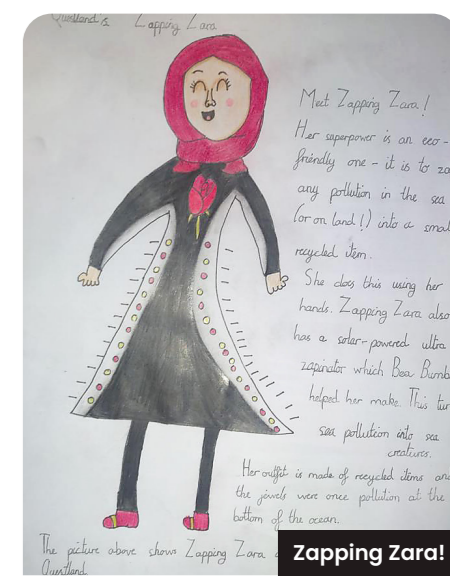 Zapping Zara
Meet Zapping Zara!
Her superpower is an eco-
friendly one - it is to
any pollution in the sea
(or on land!) into a
recycled item.
She does this using her
hands. Zapping Zara also
has a solar-powered ultra
zapinator which Bea
helped her make. This
sea pollution into sea
creatures.
Her outfit is made of recycled items
the jewels were once pollution at the
bottom of the ocean.
The picture above shows Zapping Zara
Zapping Zara!